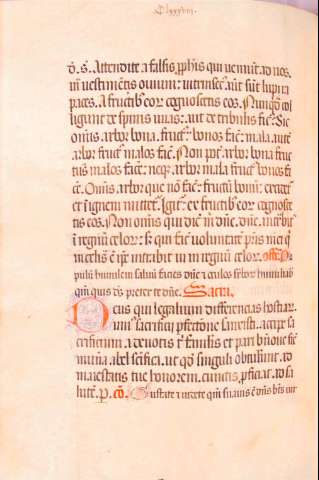 Clxxxviii.
d. s. Attendite a falsis p̱phis qui veniūt. ad uos.
in vestimentis ouium: intrinsec. aūt sūt lupi ra
paces. A fructib᷒ eoꝝ cognoscetis eos. Nunqd̄ col
ligunt de spinis vuas: aut de tribulis fic᷒: Sic
omīs. arbor bona. fruct᷒. bonos fac̄: mala. aut̄
arbor. fruct᷒ malos. fac̄. Non pōt. arbor bona fruc
tus malos. fac̄e: neq̨. arbor mala fruct᷒ bonos fa
c̄e. Omīs. arbor que nō fac̄. fructū bonū: excidet᷒
et ī ignem mittet᷒. Igit᷒. ex fructib᷒ eoꝝ cognosce
tis eos. Non omīs qui dic̄ m̄. dn̄e. dn̄e. intrabit
ī regnū celoꝝ: s̄ qui fac̄ voluntatē pr̄is mei q̄
in celis ē ip̄e intrabit in in regnū celoꝝ. offr̄. Po
pulū humilem saluū facies dn̄e ⁊ oculos sꝑboꝝ humiliab
qm̄ quis ds̄ preter te dn̄e. Sacra.
Deus qui legalium differencias hostiar.
unī sacrificij ꝑfectione sanxisti. accipe sa
crificium. a deuotis t᷒ famulis et pari bn̄one sic
munā abel sc̄ifica. ut qd̄ singuli obtulerūt. ad
maiestatis tue honorem. cunctis ꝓficiat. ad sa
lutē. p. cō. Gustate ⁊ uidete qm̄ suauis ē dn̄s bt̄s uir